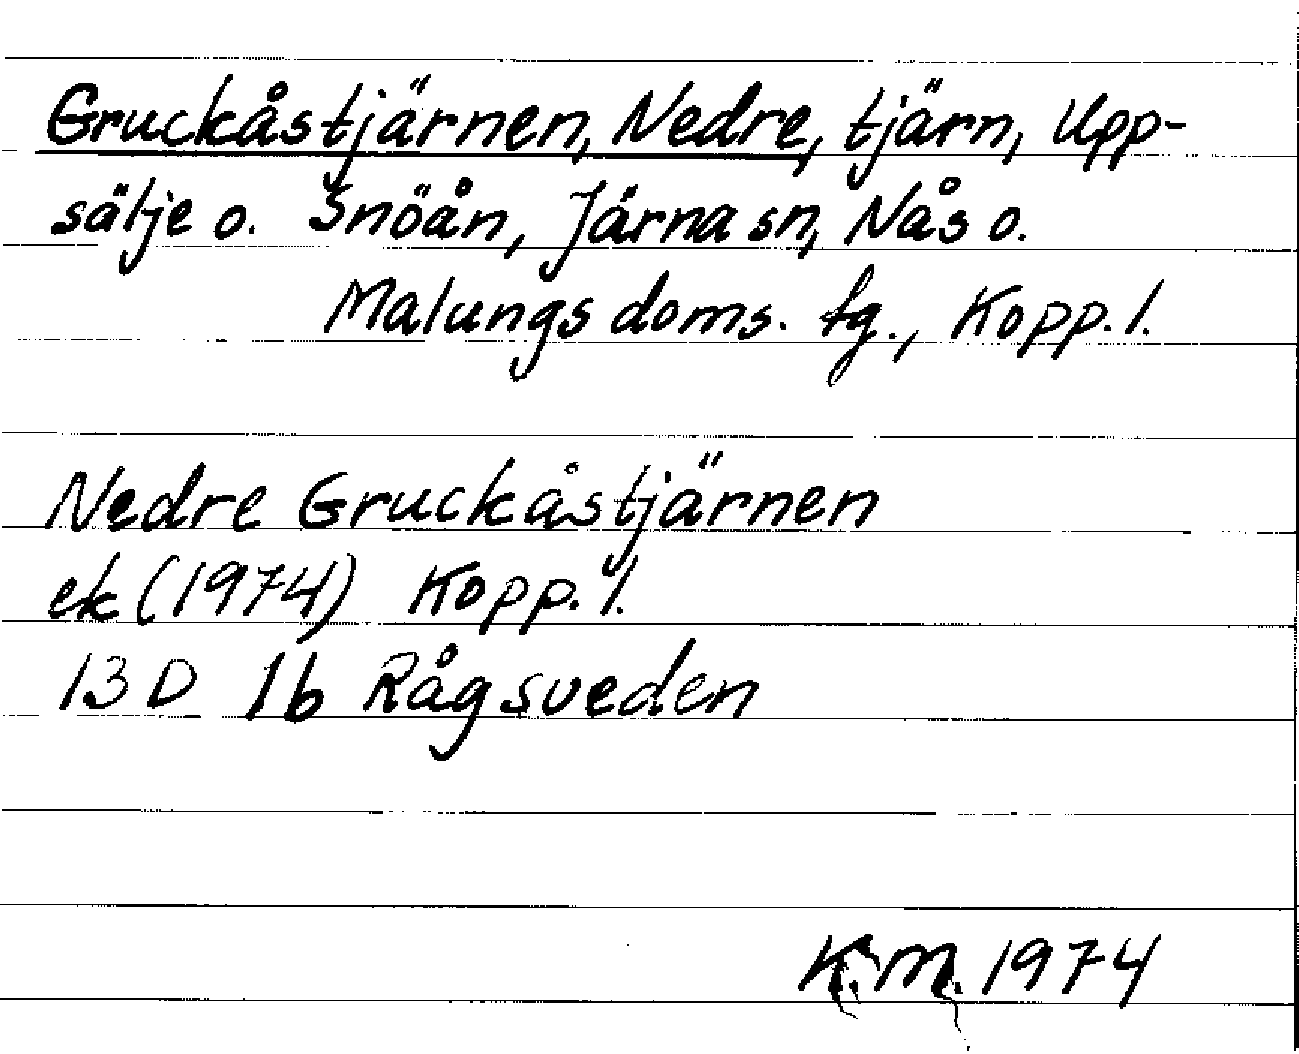 Gruckåstjärnen, Nedre, tjärn, Upp-
sälje o. Snöån, Järna sn, Nås o.
Malungs doms. tg., Kopp. l.
Nedre Gruckåstjärnen
ek (1974) Kopp. l.
13 D 1b Rågsveden
K.M. 1974